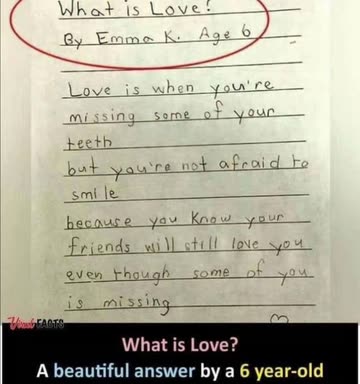 What is Love?
By Emma K. Age 6
Love is when you're
missing some of your
teeth
but you're not afraid to
smile
because you know your
friends will still love you
even though some of you
is missing
Visual FACTS
What is Love?
A beautiful answer by a 6 year-old